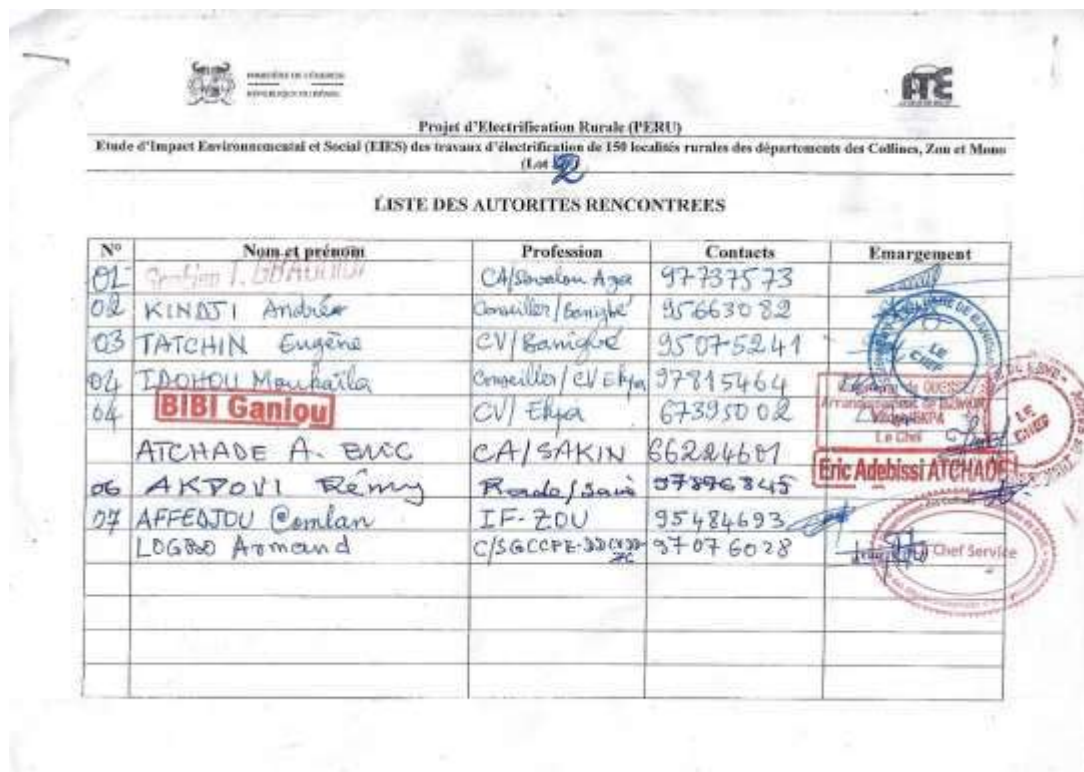 MINISTÈRE DE L'ÉNERGIE
RÉPUBLIQUE DU BÉNIN
Projet d'Electrification Rurale (PERU)
Etude d'Impact Environnemental et Social (EIES) des travaux d'électrification de 150 localités rurales des départements des Collines, Zou et Mono
(Lot 2)
LISTE DES AUTORITES RENCONTREES
N° Nom et prénom Profession Contacts Emargement
01 CA/Savalou Aga 97737573
02 KINDJI Andréa Conseiller/Banigbé 95663082
03 TATCHIN Eugène CV/Banigbé 95075241
LE CHEF
04 IDOHOU Moukaïla Conseiller/CV Ekpa 97815464
04 BIBI Ganiou CV/ Ekpa 67395002
Le Chef
LE CHEF
ATCHADE A. ERIC CA/SAKIN 66224601
Eric Adebissi ATCHADE
06 AKPOVI Rémy 97896845
07 AFFEDJOU Comlan IF-ZOU 95484693
LOGBO Armand 97076028
Chef Service